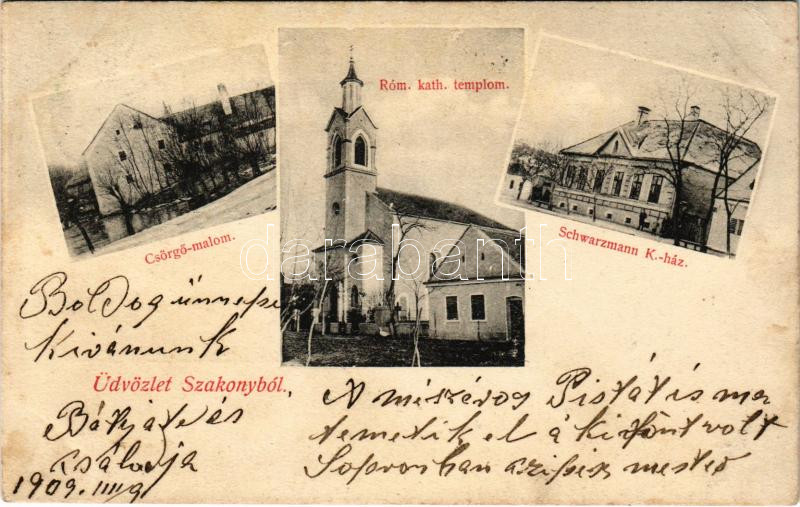 Róm. kath. templom.
Csörgő-malom.
Schwarzmann K.-ház.
darabanth
Boldog ünnepe
Kivánunk
Üdvözlet Szakonyból.
Bátyátok és
családja
1909. IIII/9
A mészáros Pistát is ma
temetik el a ki font volt
Sopronban